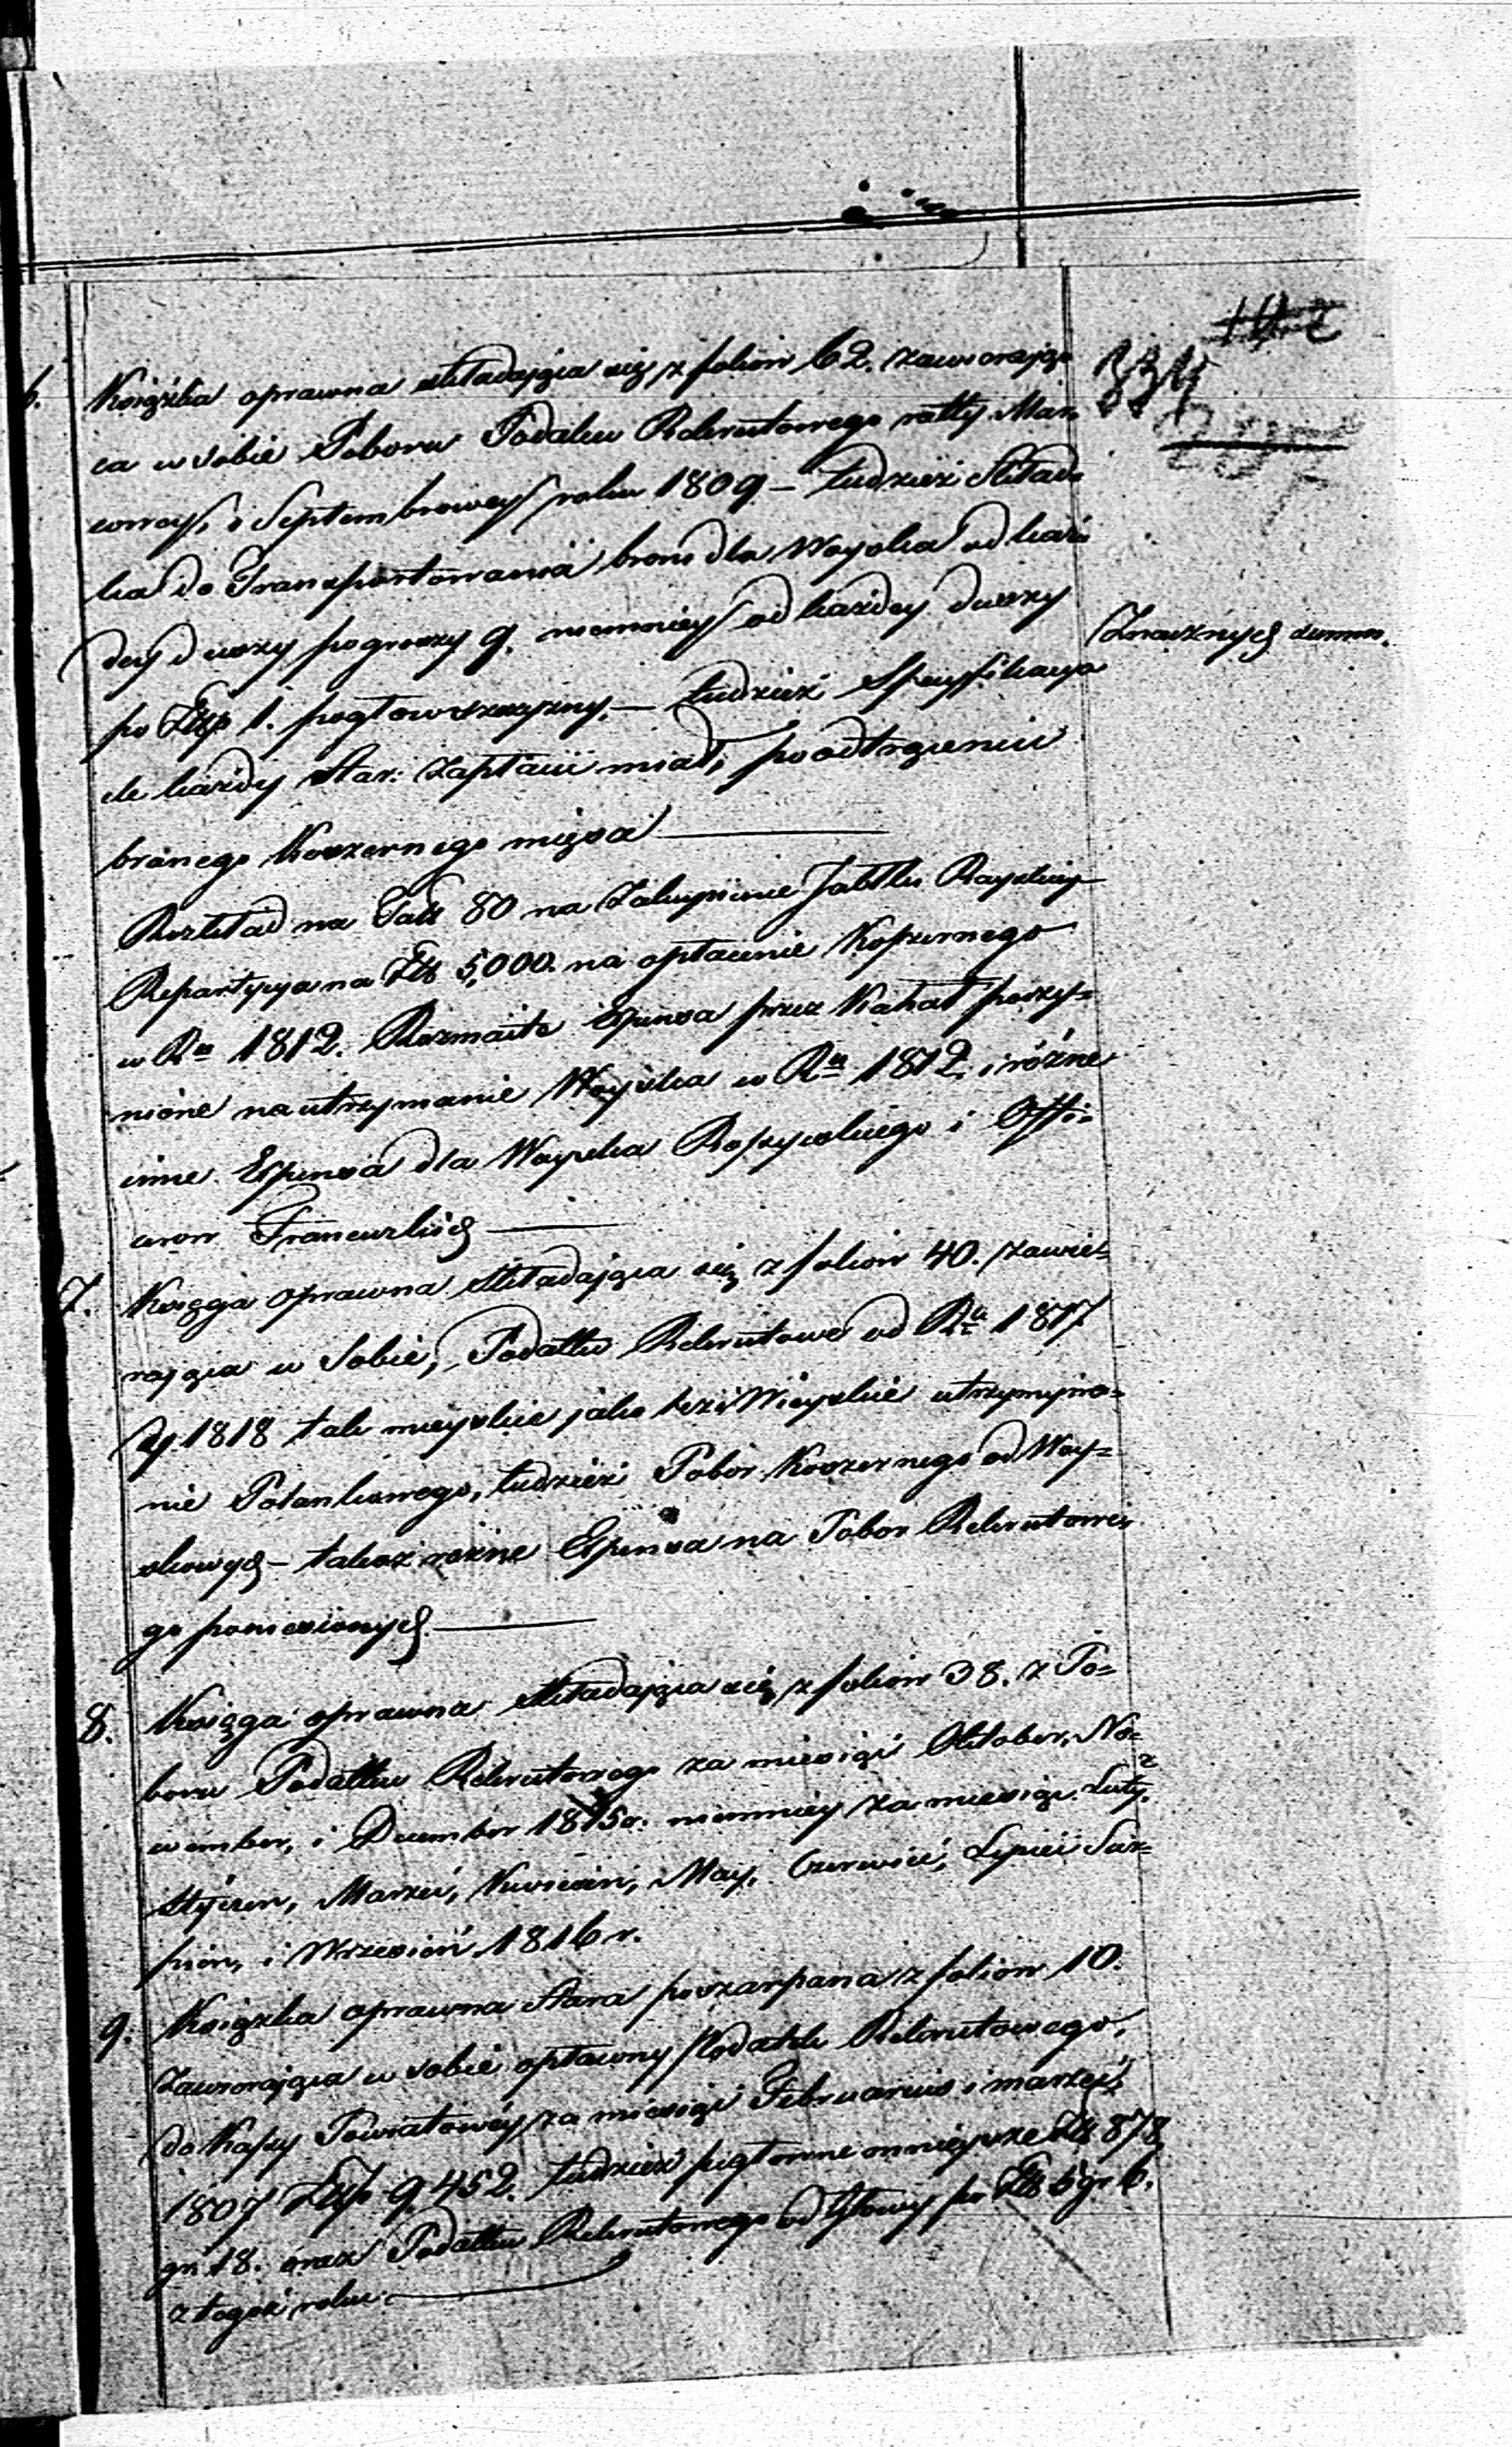 334
6. Książka oprawna składająca się z foliow 62. zawierają-
ca w sobie Poboru Podatku Rekrutowego ratty Mar-
cowey, i Septembrowey roku 1809 – tudzież Skład-
ka do Transportowania broni dla Woyska od każ-
dey duszy po groszy 9. niemniey od każdey duszy
Znacznych summ.
po Złp 1. pogłowszczyzny. – tudzież Specyfikacya
ile każdy Star: zapłacić miał, po odtrąceniu
branego Koszernego mięsa
Rozkład na Tall 80 na Zakupienie Jabłek Rayskich
Repartycya na Zł 5,000. na opłacenie Koszernego
w Ru 1812. Rozmaite Expensa przez Kahał poczy-
nione na utrzymanie Woyska w Ru 1812. i różne
inne Expensa dla Woyska Rossyiskiego i Offi-
cerow Francuzkich
7. Księga oprawna składająca się z foliow 40. zawie-
rająca w Sobie, Podatku Rekrutowe od Ru 1817
dy 1818 tak mieyskie jako też i Wieyskie utrzymywa-
nie Potankowego, tudzież Pobor Koszernego od Woy-
skowych – takoż rożne Expensa na Pobor Rekrutowe-
go poniesionych
8. Księga oprawna składająca się z foliow 38. z Po-
boru Podatku Rekrutowego za miesiąc Oktober, No-
wember, i December 1815 r. niemniey za miesiąc Luty,
Styczeń, Marzec, Kwiecień, May, Czerwiec, Lipiec Sier-
pień, i Wrzesień 1816 r.
9. Książka oprawna Stara poszarpana z foliow 10.
Zawierająca w sobie opłacony Podatek Rekrutowego,
do Kassy Powiatowey za miesiąc Februarius i marzec
1807 Złp 9,452. tudzież pogłowne mnieysze Zł 878
gr. 18. oraz Podatku Rekrutowego od głowy po Zł 5 gr 6.
z tegoż roku